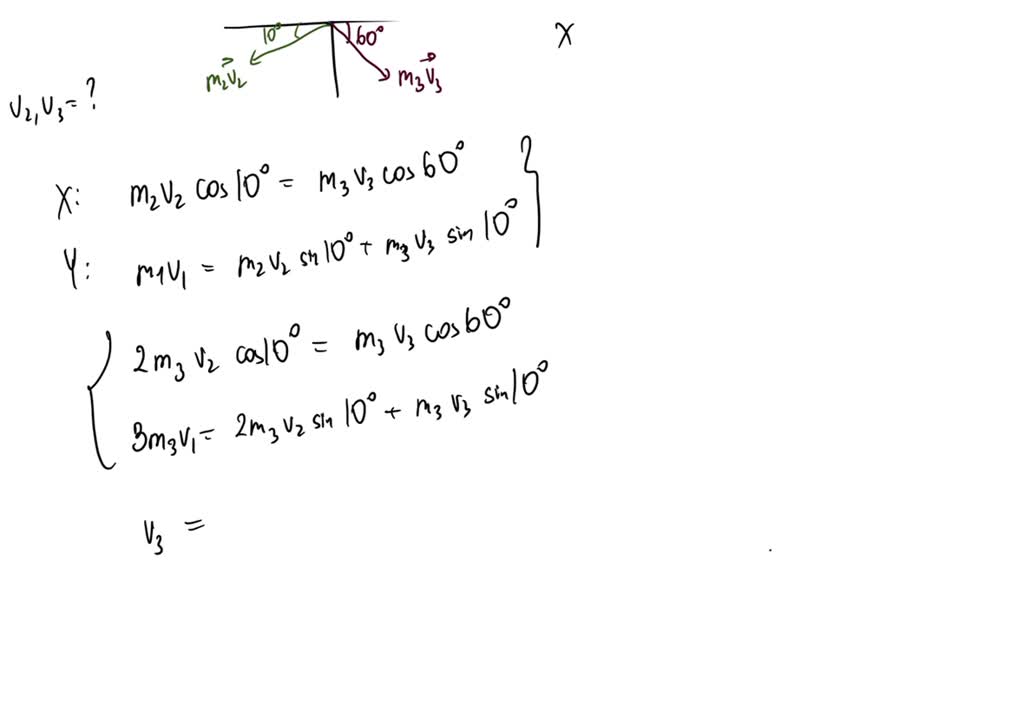 10° 60° X
m₂v⃗₂ m₃v⃗₃
v₂,v₃=?
X: m₂v₂ cos10° = m₃v₃cos60°
Y: m1v₁ = m₂v₂ sin10° + m₃v₃ sin10°
2m₃v₂ cos10° = m₃v₃cos60°
3m₃v₁= 2m₃v₂sin10° + m₃v₃ sin10°
v₃ =